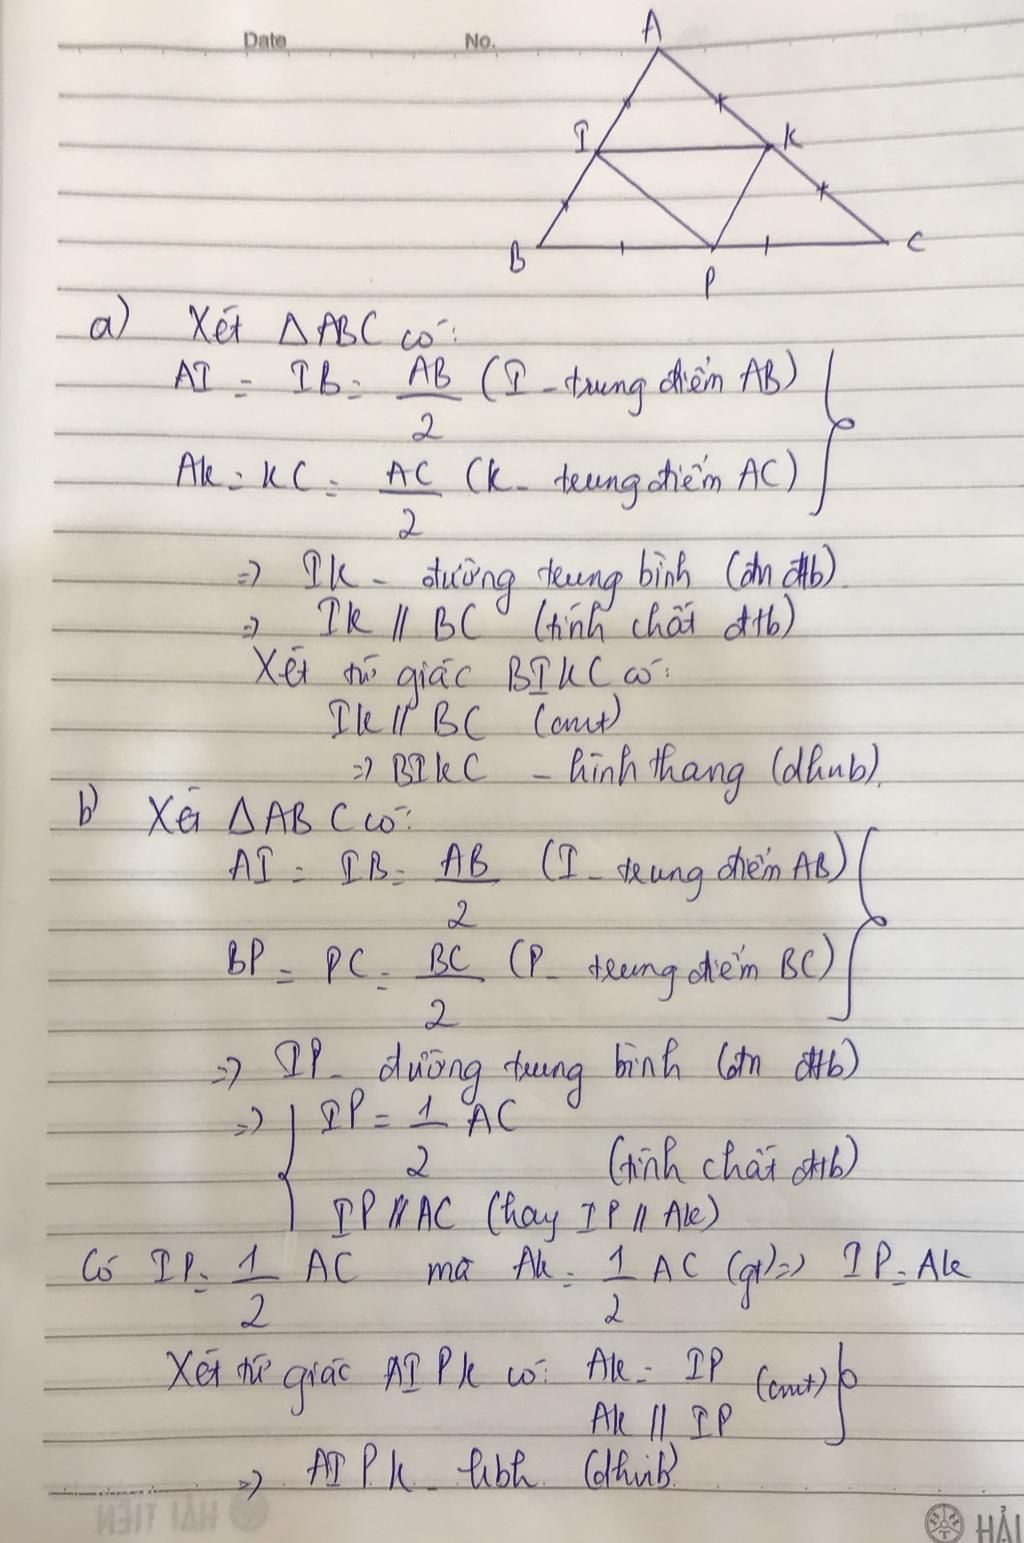 Date No.
A
I K
B P C
a) Xét ΔABC có:
AI = IB = AB/2 (I - trung điểm AB)
AK = KC = AC/2 (K - trung điểm AC)
=> IK - đường trung bình (đn đtb)
=> IK // BC (tính chất đtb)
Xét tứ giác BIKC có:
IK // BC (cmt)
=> BIKC - hình thang (dhnb)
b) Xét ΔABC có:
AI = IB = AB/2 (I - trung điểm AB)
BP = PC = BC/2 (P - trung điểm BC)
=> IP - đường trung bình (đn đtb)
=> IP = 1/2 AC
(tính chất đtb)
IP // AC (hay IP // AK)
Có IP = 1/2 AC mà AK = 1/2 AC (gt) => IP = AK
Xét tứ giác AIPK có: AK = IP
(cmt)
AK // IP
=> AIPK - hbh (dhnb)
HẢI TIẾN
HẢI